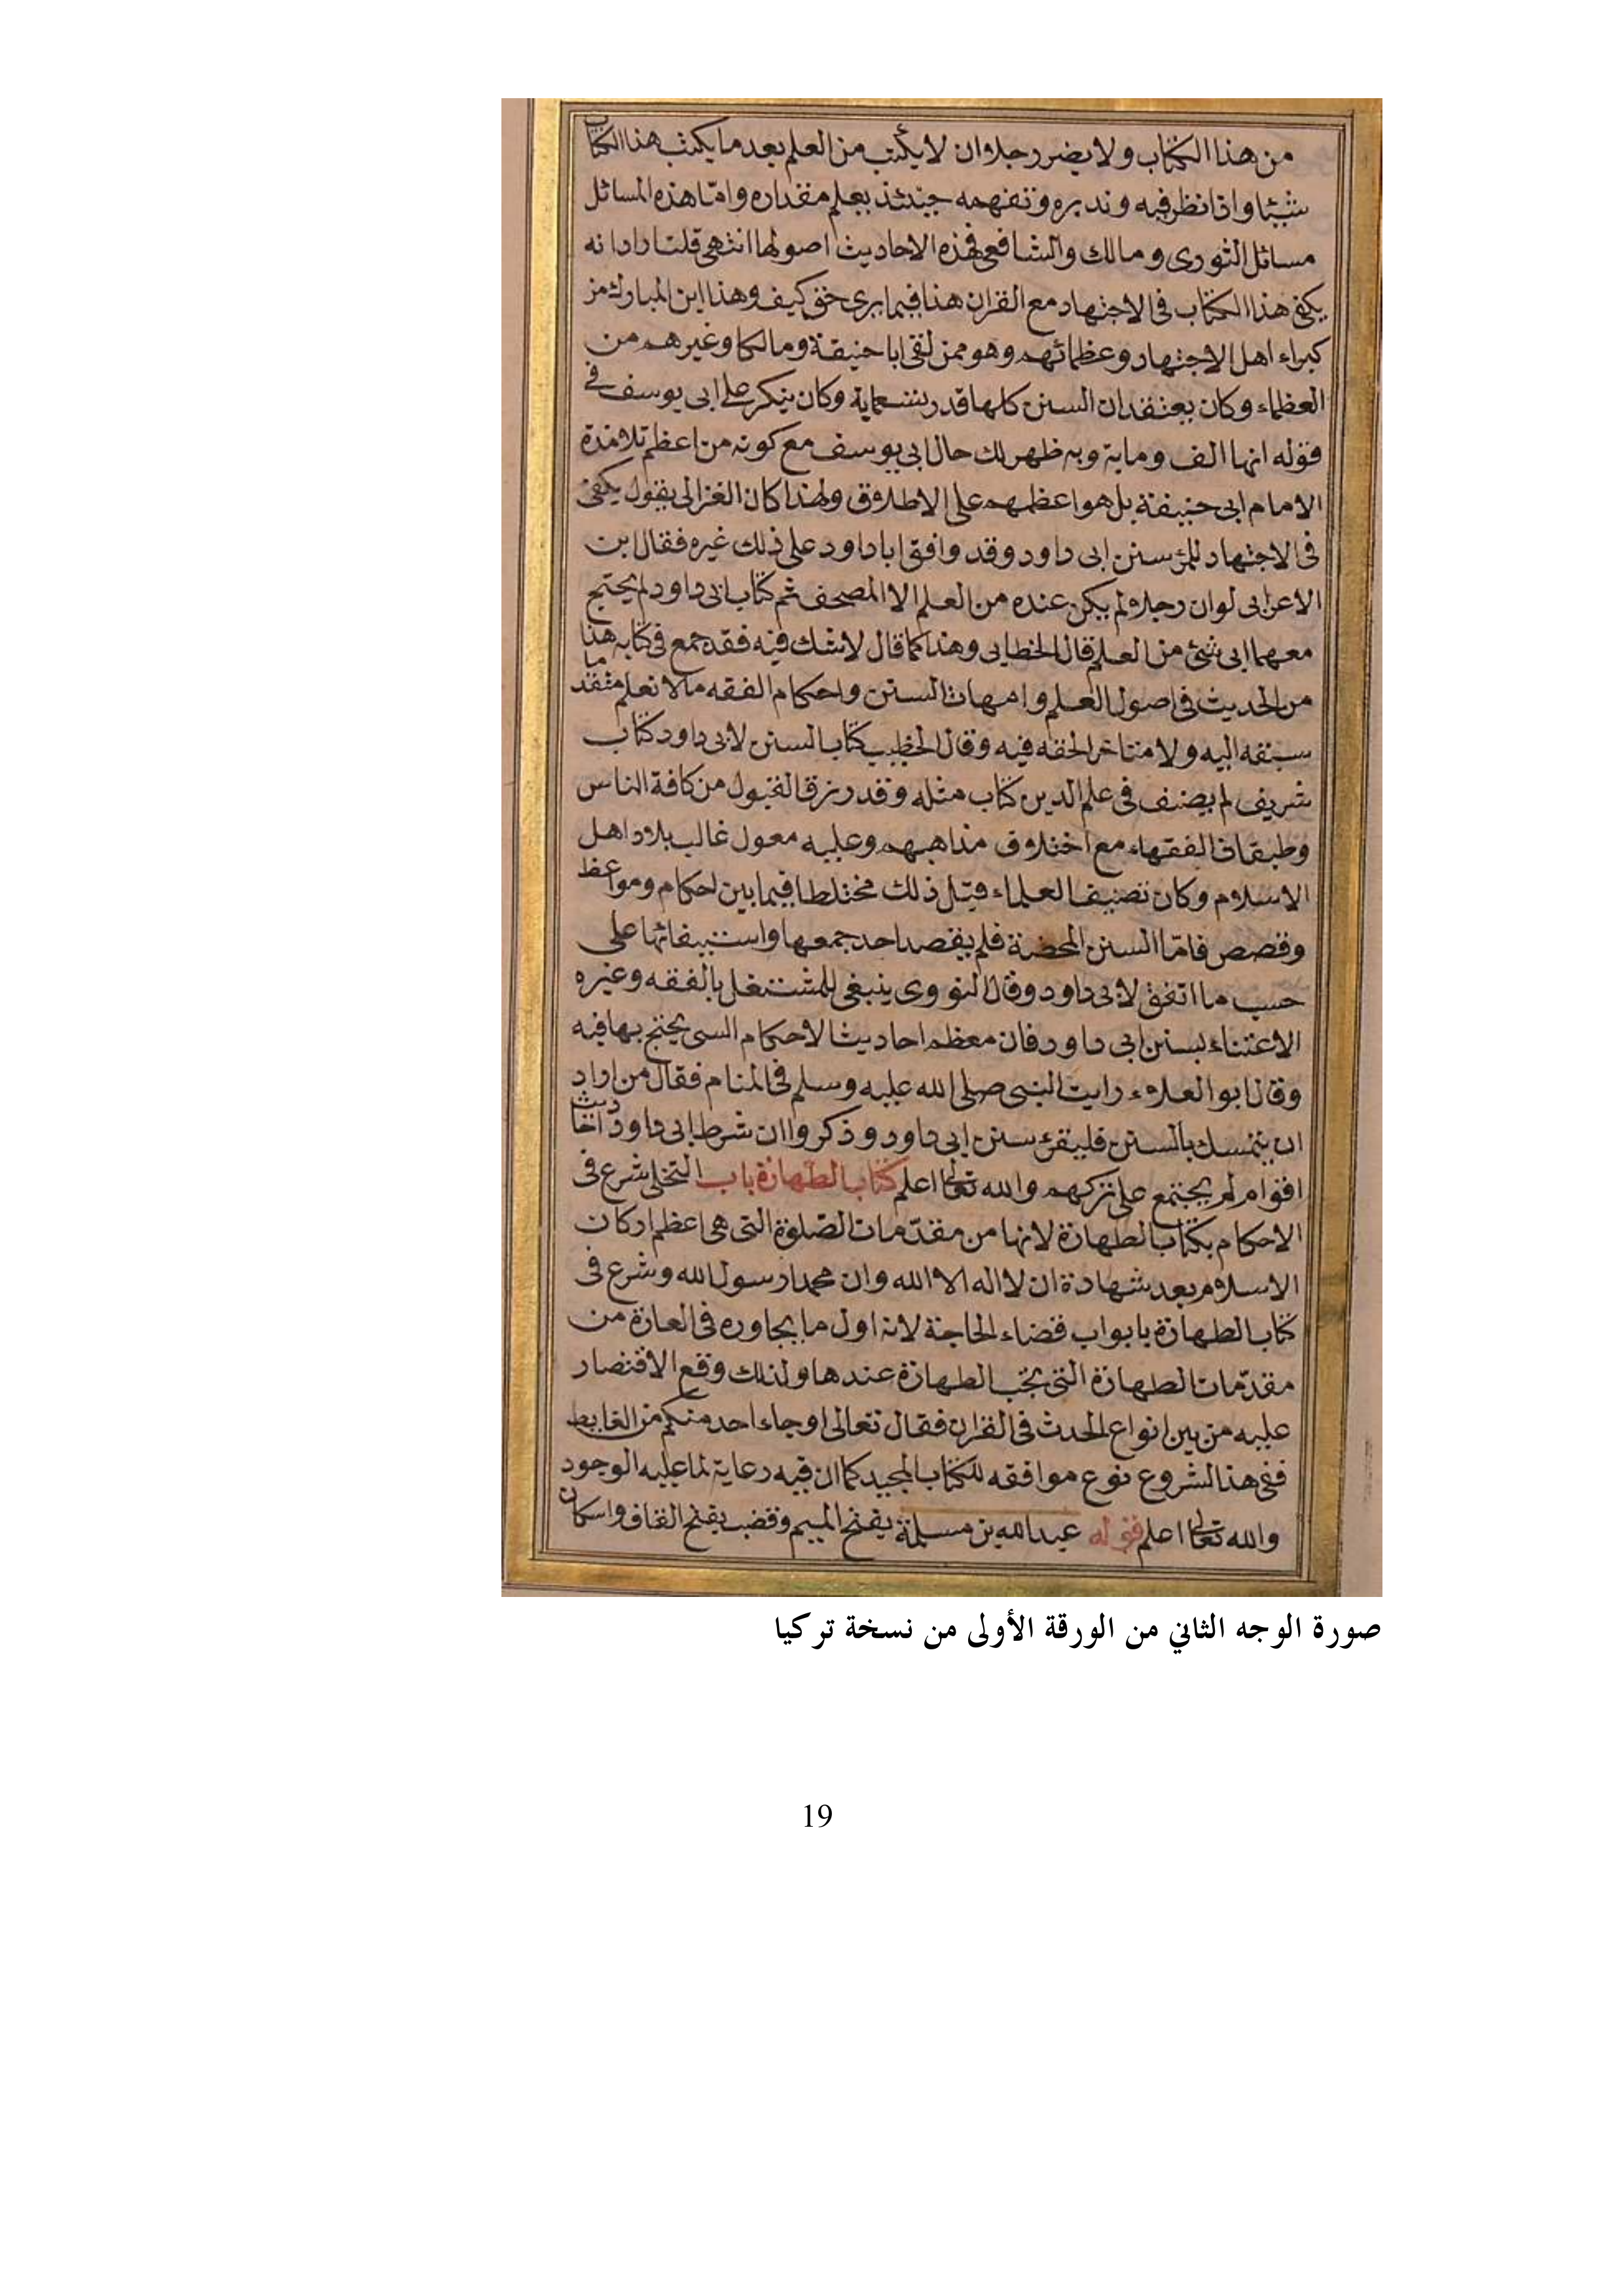 من هذا الكتاب ولا يضر رجلا ان لا يكتب من العلم بعد ما يكتب هذا الكتاب
شيئا واذا نظر فيه وتدبره وتفهمه حينئذ يعلم مقداره وامّا هذه المسائل
مسائل الثورى ومالك والشافعى فهذه الاحاديث اصولها انتهى قلت اراد انه
يكفى هذا الكتاب فى الاجتهاد مع القران هذا فيما يرى حق كيف وهذا ابن المبارك من
كبراء اهل الاجتهاد وعظمائهم وهو ممن لقى ابا حنيفة ومالكا وغيرهم من
العظماء وكان يعتقد ان السنن كلها قدر تسعماية وكان ينكر على ابى يوسف فى
قوله انها الف وماية وبه ظهر لك حال ابى يوسف مع كونه من اعظم تلامذة
الامام ابى حنيفة بل هو اعظمهم على الاطلاق ولهذا كان الغزالى يقول يكفى
فى الاجتهاد للمرء سنن ابى داود وقد وافق ابا داود على ذلك غيره فقال ابن
الاعرابى لو ان رجلا لم يكن عنده من العلم الا المصحف ثم كتاب ابى داود لم يحتج
معهما الى شئ من العلم قال الخطابى وهذا كما قال لا شك فيه فقد جمع فى كتابه هذا
من الحديث فى اصول العلم وامهات السنن واحكام الفقه ما لا نعلم متقدما
سبقه اليه ولا متاخر الحقه فيه وقال الخطيب كتاب السنن لابى داود كتاب
شريف لم يصنف فى علم الدين كتاب مثله وقد رزق القبول من كافة الناس
وطبقات الفقهاء مع اختلاف مذاهبهم وعليه معول غالب بلاد اهل
الاسلام وكان تصنيف العلماء قبل ذلك مختلطا فيما بين احكام ومواعظ
وقصص فامّا السنن المحضة فلم يقصد احد جمعها واستيفائها على
حسب ما اتفق لابى داود وقال النووى ينبغى للمشتغل بالفقه وغيره
الاعتناء بسنن ابى داود فان معظم احاديث الاحكام التى يحتج بها فيه
وقال ابو العلاء رايت النبى صلى الله عليه وسلم فى المنام فقال من اراد
ان يتمسك بالسنن فليقرء سنن ابى داود وذكروا ان شرط ابى داود احاديث
اقوام لم يجتمع على تركهم والله تعالى اعلم كتاب الطهارة باب التخلى شرع فى
الاحكام بكتاب الطهارة لانها من مقدّمات الصّلوة التى هى اعظم اركان
الاسلام بعد شهادة ان لا اله الا الله وان محمدا رسول الله وشرع فى
كتاب الطهارة بابواب قضاء الحاجة لانه اول ما يجاوره فى العادة من
مقدّمات الطهارة التى تجب الطهارة عندها ولذلك وقع الاقتصار
عليه من بين انواع الحدث فى القران فقال تعالى او جاء احد منكم من الغايط
ففى هذا الشروع نوع موافقه للكتاب المجيد كما ان فيه رعاية لما عليه الوجود
والله تعالى اعلم قوله عبد الله بن مسلمة بفتح الميم وقضب بفتح القاف واسكان
صورة الوجه الثاني من الورقة الأولى من نسخة تركيا
19